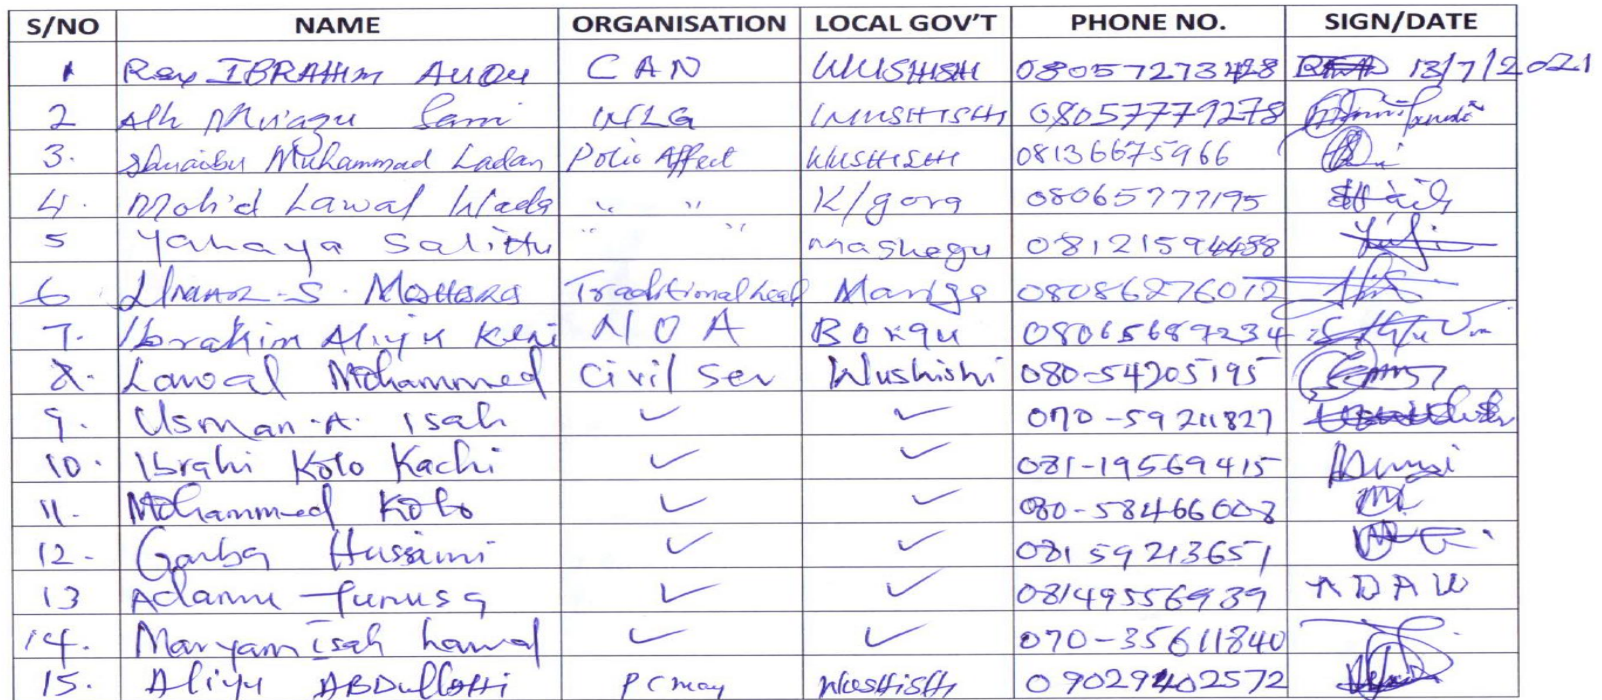 S/NO NAME ORGANISATION LOCAL GOV'T PHONE NO. SIGN/DATE
1 Rev IBRAHIM AUDU CAN WUSHISHI 08057273428 13/7/2021
2 Alh Mu'azu Sani INLG WUSHISHI 08057779278
3. Shuaibu Muhammad Ladan Polio Affect WUSHISHI 08136675966
4. Moh'd Lawal Wada " " K/gora 08065777195
5 Yahaya Salihu " " Mashegu 08121594438
6 S. Traditional head Mariga 08086276012
7. Ibrahim Aliyu NOA Borgu 08065687234
8. Lawal Mohammed Civil Ser Wushishi 080-54205195
9. Usman .A. Isah ✓ ✓ 070-59211827
10. Ibrahi Kolo Kachi ✓ ✓ 081-19569415
11. Mohammed Kolo ✓ ✓ 080-58466008
12- Garba Hussaini ✓ ✓ 08159213651
13 Adamu Yunusa ✓ ✓ 08149556939 ADAU
14. Maryam Isah Lawal ✓ ✓ 070-35611840
15. Aliyu ABDullahi WUSHISHI 09029402572